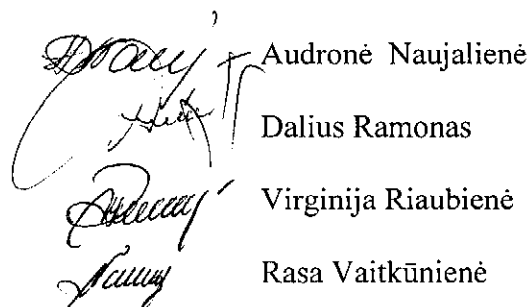 Audronė Naujalienė
Dalius Ramonas
Virginija Riaubienė
Rasa Vaitkūnienė